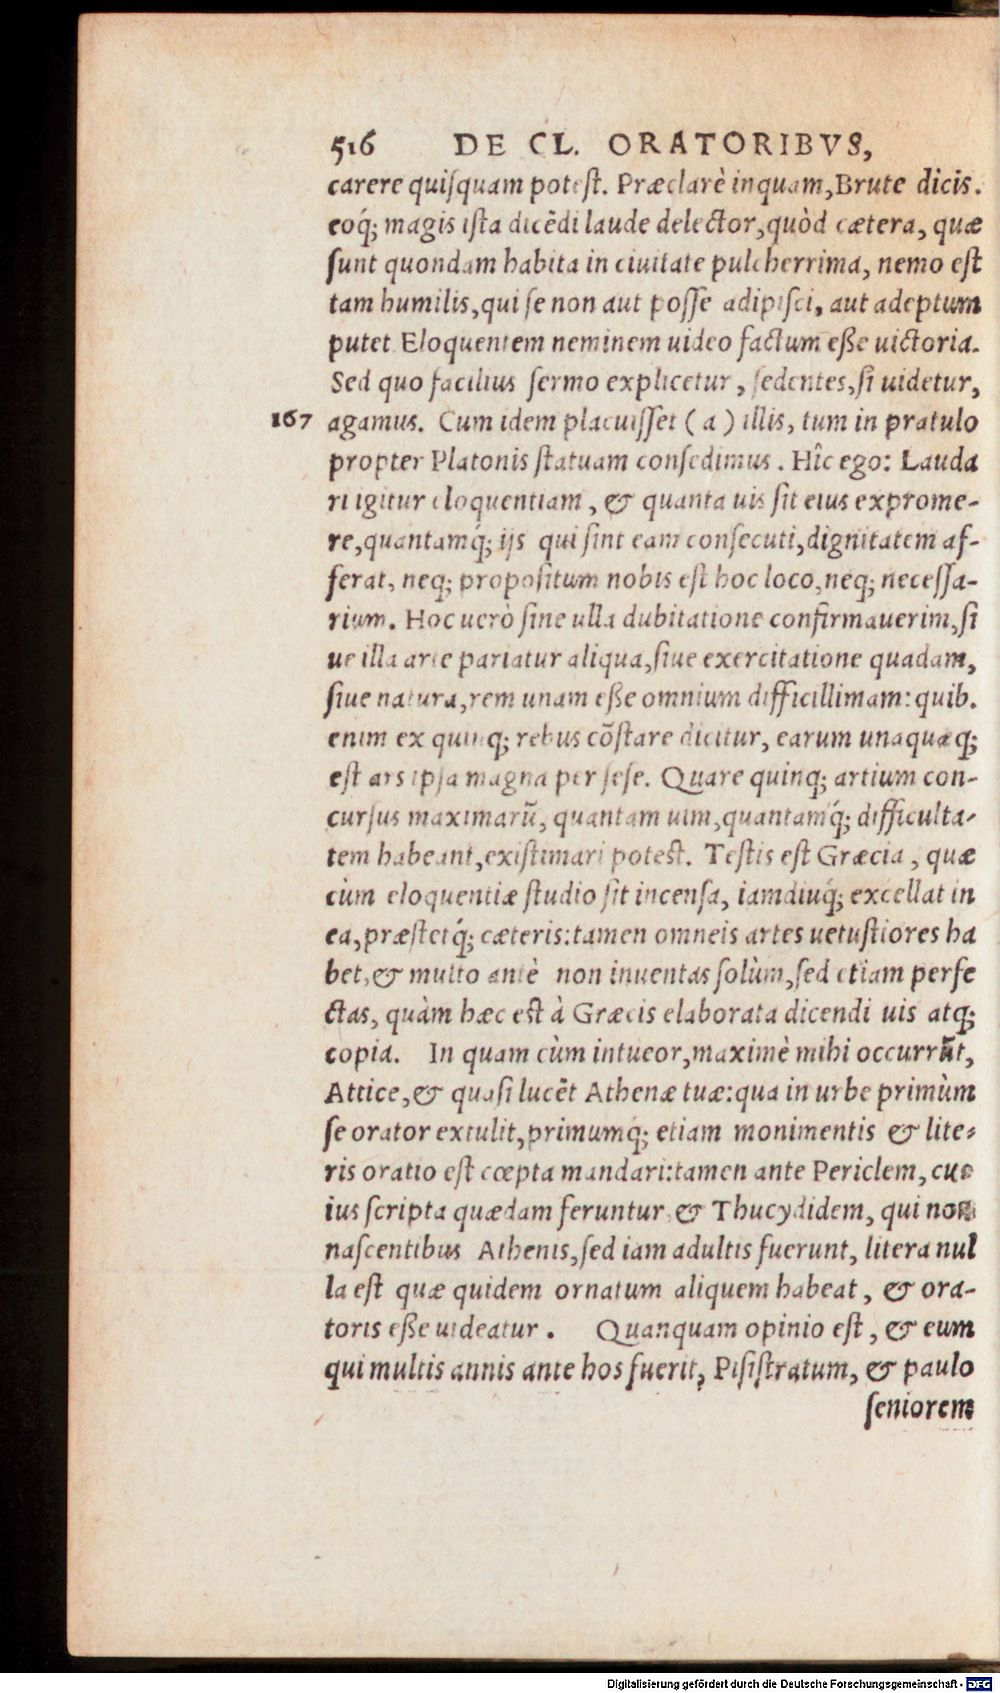 516 DE CL. ORATORIBVS,
carere quiſquam poteſt. Præclarè inquam, Brute dicis.
eoq́; magis iſta dicēdi laude delector, quòd cætera, quæ
ſunt quondam habita in ciuitate pulcherrima, nemo eſt
tam humilis, qui ſe non aut poſſe adipiſci, aut adeptum
putet Eloquentem neminem uideo factum eſſe uictoria.
Sed quo facilius ſermo explicetur, ſedentes, ſi uidetur,
167 agamus. Cum idem placuiſſet (a) illis, tum in pratulo
propter Platonis ſtatuam conſedimus. Hîc ego: Lauda
ri igitur eloquentiam, & quanta uis ſit eius exprome-
re, quantamq́; ijs qui ſint eam conſecuti, dignitatem af-
ferat, neq; propoſitum nobis eſt hoc loco, neq; neceſſa-
rium. Hoc uerò ſine ulla dubitatione confirmauerim, ſi
ue illa arte pariatur aliqua, ſiue exercitatione quadam,
ſiue natura, rem unam eſſe omnium difficillimam: quib.
enim ex quinq; rebus cōſtare dicitur, earum unaquæq;
eſt ars ipſa magna per ſeſe. Quare quinq; artium con-
curſus maximarū, quantam uim, quantamq́; difficulta-
tem habeant, exiſtimari poteſt. Teſtis eſt Græcia, quæ
cùm eloquentiæ ſtudio ſit incenſa, iamdiuq́; excellat in
ea, præſtetq́; cæteris: tamen omneis artes uetuſtiores ha
bet, & multo antè non inuentas ſolùm, ſed etiam perfe
ctas, quàm hæc eſt à Græcis elaborata dicendi uis atq;
copia. In quam cùm intueor, maximè mihi occurrūt,
Attice, & quaſi lucēt Athenæ tuæ: qua in urbe primùm
ſe orator extulit, primumq́; etiam monimentis & lite-
ris oratio eſt cœpta mandari: tamen ante Periclem, cu-
ius ſcripta quædam feruntur & Thucydidem, qui non
naſcentibus Athenis, ſed iam adultis fuerunt, litera nul
la eſt quæ quidem ornatum aliquem habeat, & ora-
toris eſſe uideatur. Quanquam opinio eſt, & eum
qui multis annis ante hos fuerit, Piſiſtratum, & paulo
ſeniorem
Digitalisierung gefördert durch die Deutsche Forschungsgemeinschaft - DFG